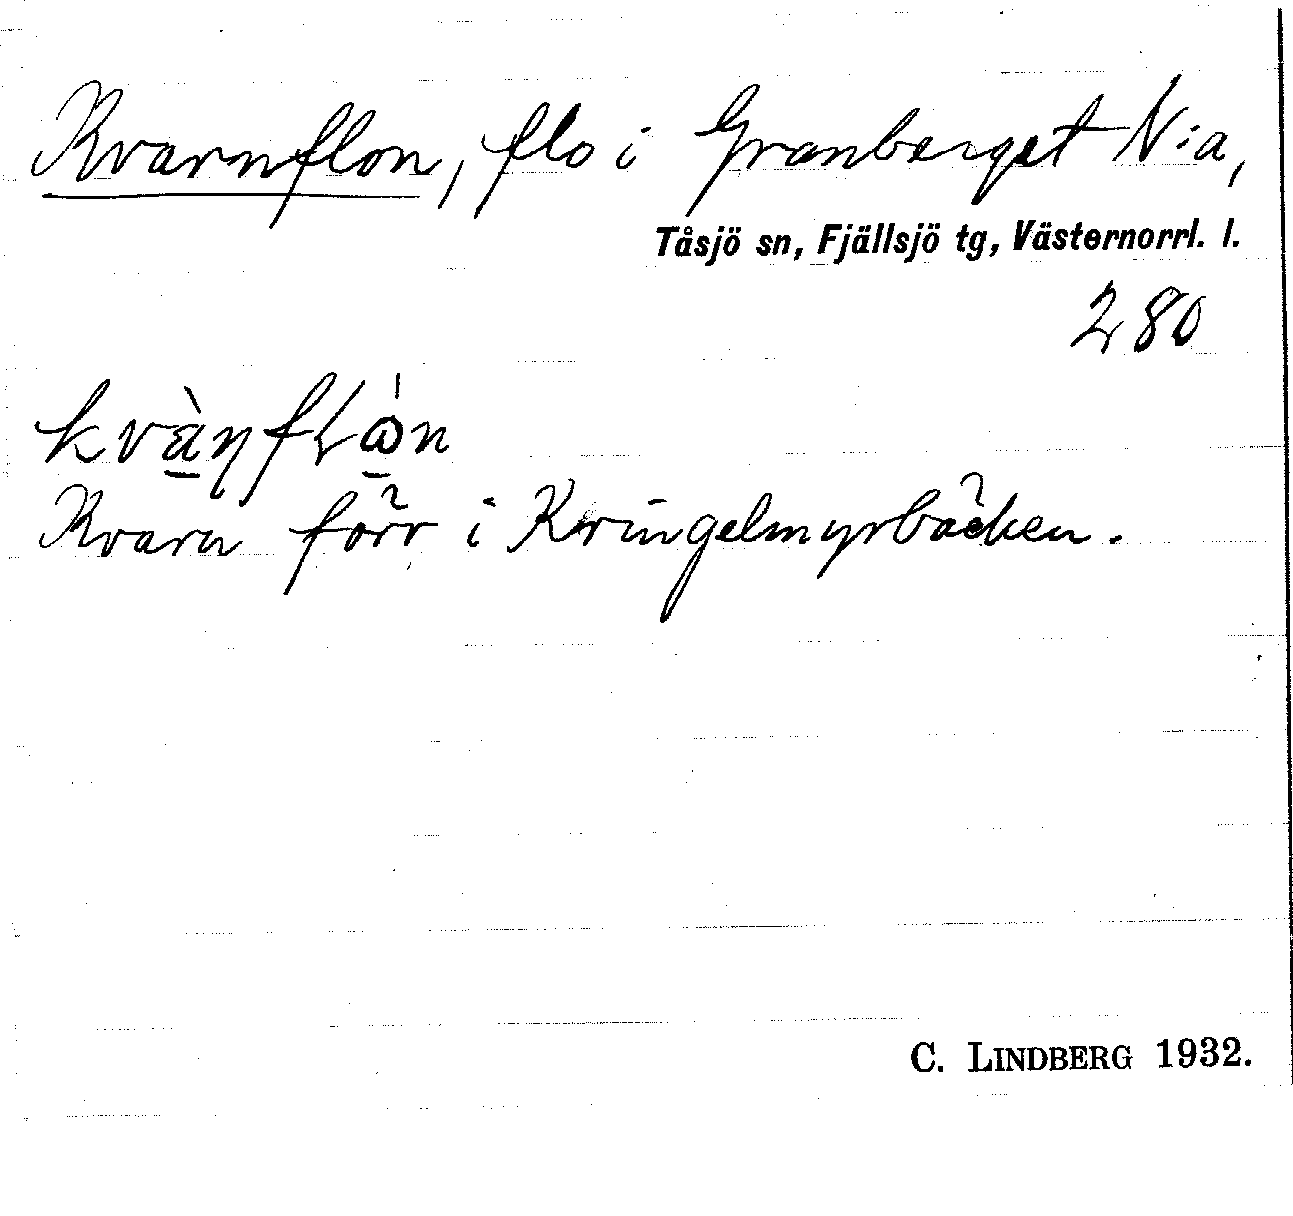 Kvarnflon, flo i Granberget N:a,
Tåsjö sn, Fjällsjö tg, Västernorrl. l.
280
kvàṇfɽὼn
Kvarn förr i Kringelmyrbäcken.
C. LINDBERG 1932.